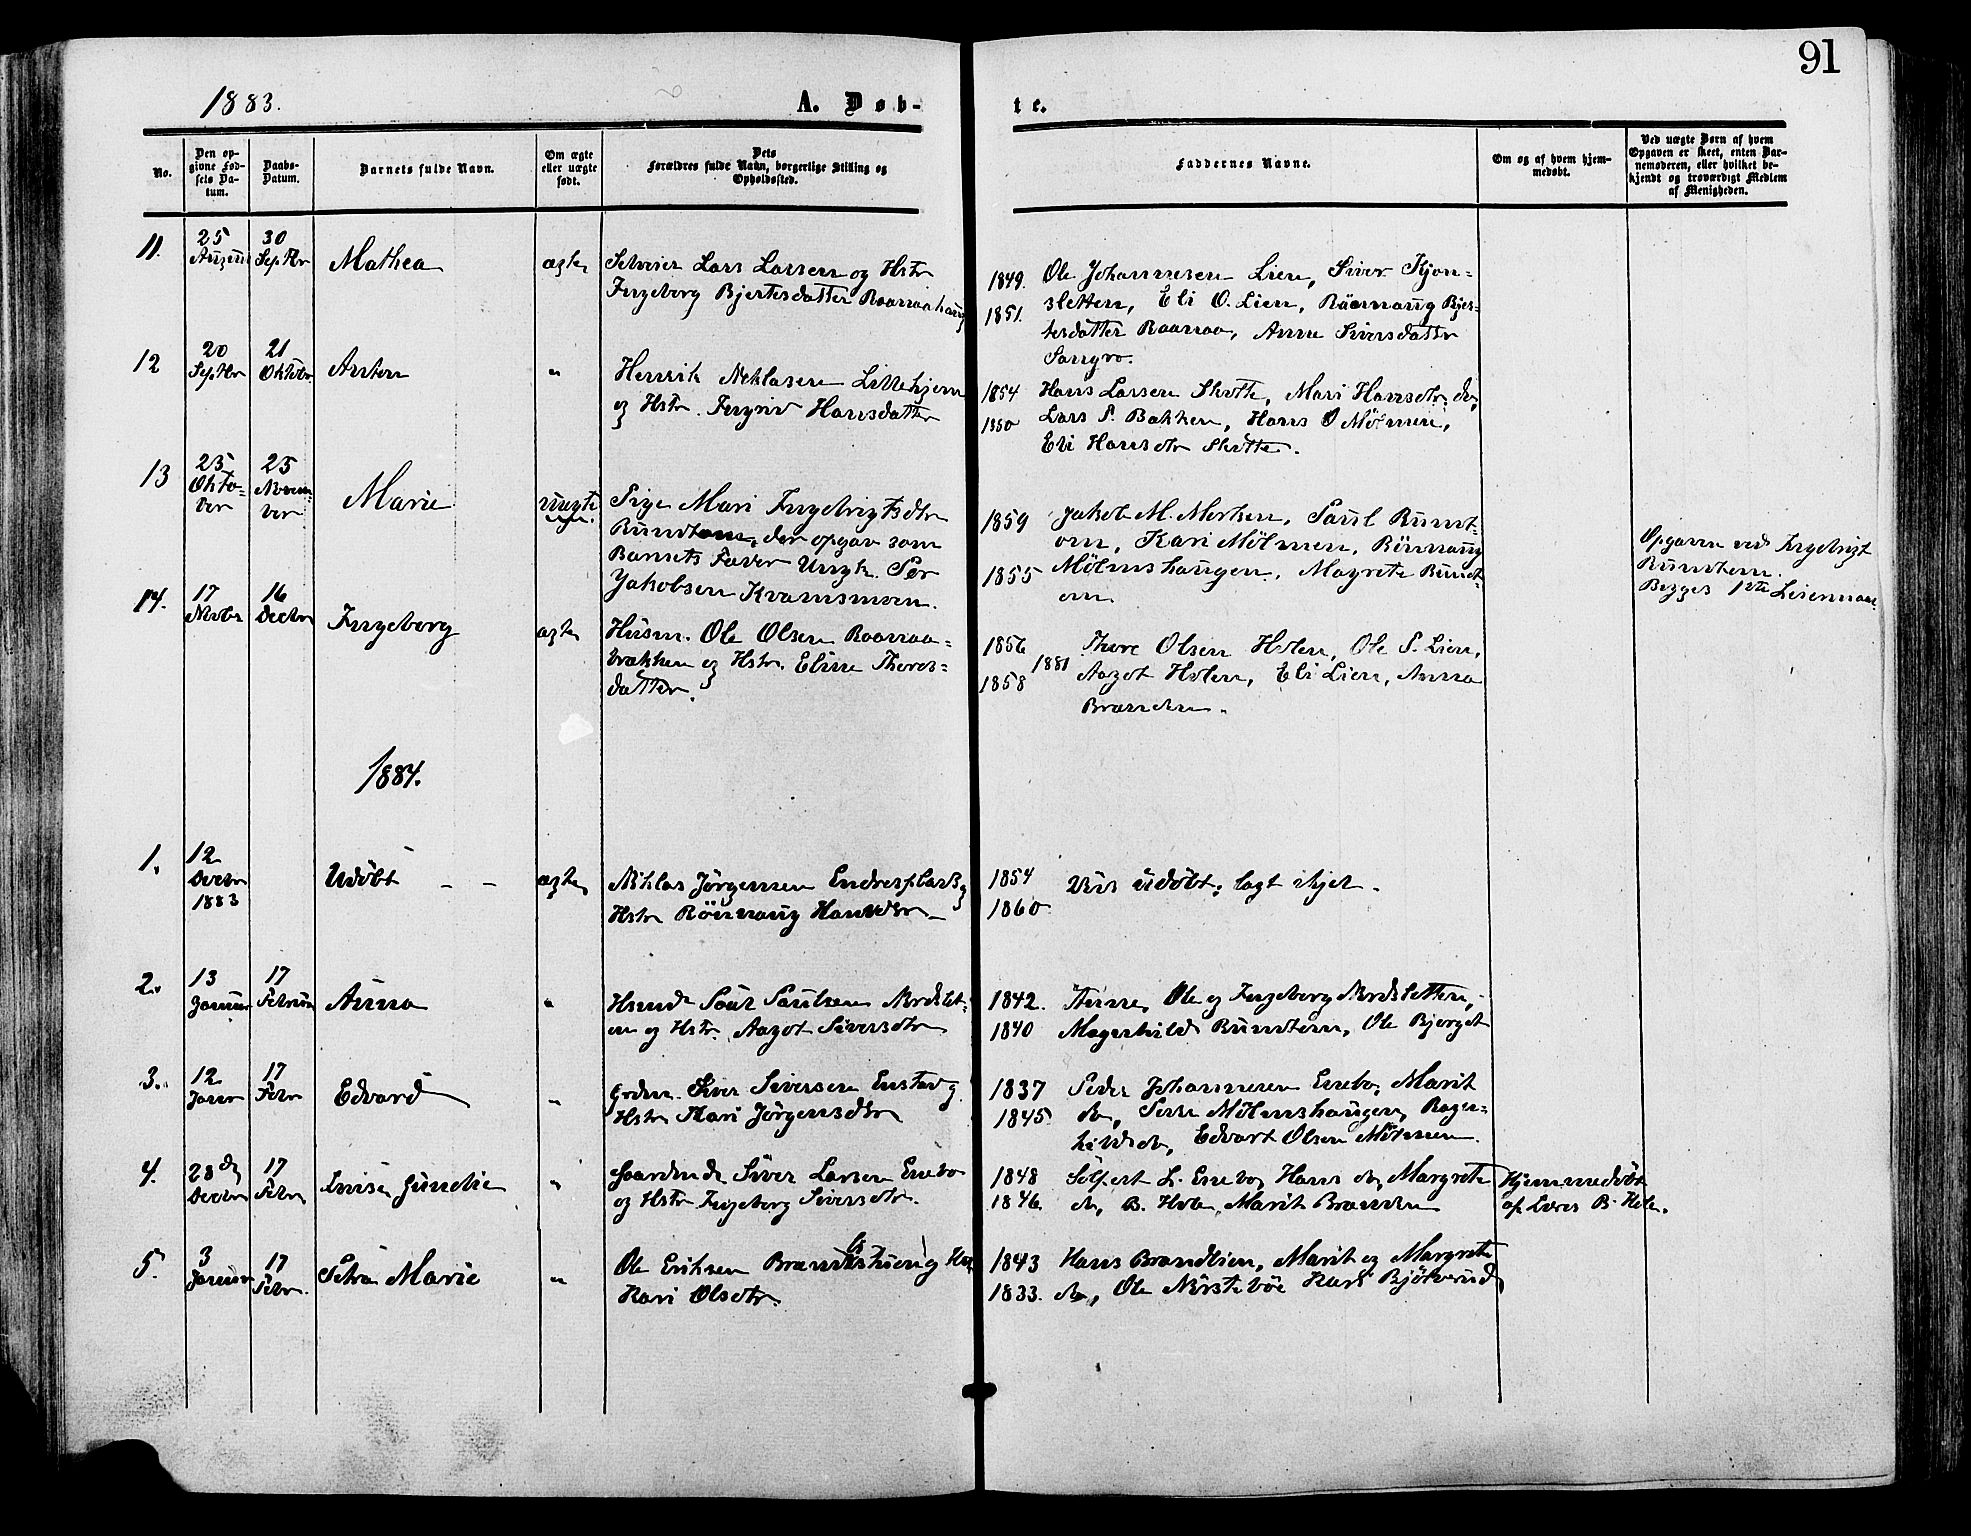 91
1883.
A. Døb-
te.
No.
Den op-
givne Fød-
sels Da-
tum.
Daabs-
Datum.
Barnets fulde Navn.
Om ægte
eller uægte
født.
Dets
Forældres fulde Navn, borgerlige Stilling og
Opholdssted.
Faddernes Navne.
Om og af hvem hjem-
medøbt.
Ved uægte Børn af hvem
Opgaven er skeet, enten Bar-
nemoderen, eller hvilket be-
kjendt og troværdigt Medlem
af Menigheden.
11.
25
August
30
Septbr
Mathea
ægte
Selveier Lars Larsen og Hstr
Ingeborg Bjertesdatter Raanaahaug
1849.
1851.
Ole Johannesen Lien, Siver Kjøn-
sletten, Eli O. Lien, Rønnaug Bjer-
tesdatter Raanaa, Anne Siversdatter
12
20
Septbr
21
Oktobr.
Anton
"
Henrik Niklasen Lillehjem
og Hstr. Ingrid Hansdatter
1854
1850
Hans Larsen Skotte, Mari Hansdtr do,
Lars P. Bakken, Hans O Mølmen,
Eli Hansdtr Skotte.
13
23
Okto-
ber
25
Novem-
ber
Marie
uægte
Pige Mari Ingebrigtsdtr
Rundtom, der opgav som
Barnets Fader Ungk. Per
Jakobsen Kvamsmoen.
1859
1855
Jakob M. Morken, Paul Rundt-
om, Kari Mølmen, Rønnaug
Mølmshaugen, Magrete Rundt-
om.
Opgaven ved Ingebrigt
Rundtom.
Begges 1ste Leiermaal
14.
17
Novbr
16
Decbr
Ingeborg
ægte
Husm. Ole Olsen Raanaa-
bakken og Hstr. Eline Thores-
datter.
1856
1858
1881
Thore Olsen Holen, Ole P. Lien,
Aagot Holen, Eli Lien, Anna
Brænden.
1884.
1.
12
Decbr
1883
Udøbt - -
ægte
Niklas Jørgensen Endresplads og
Hstr Rønnaug Hansdtr
1854
1860
Blev udøbt, lagt ihjel.
2.
13
Januar
17
Februar
Anna
"
Paul Paulsen Nordslet-
en og Hstr. Aagot Siversdtr
1842.
1840
Anne, Ole og Ingeborg Nordsletten,
Magnhild Rundtom, Ole Bjorget
3.
12
Janr
17
Febr
Edvard
"
Grdm. Siver Siversen Enstad og
Hstr Mari Jørgensdtr
1837
1845
Peder Johannesen Enebo, Marit
do, Peder Mølmshaugen, Ragn-
hild do, Edvart Olsen Mølmen.
4.
28de
Decbr
17
Febr
Lovise Juncine
"
Siver Larsen Enebo
og Hstr Ingeborg Siversdtr.
1848
1846.
L. Enebo, Hans do, Margrete
do, B. Hole, Marit Brænden
Hjemmedøbt
af Lærer B. Hole.
5.
3
Januar
17
Febr.
Petra Marie
"
Ole Eriksen Brændlien og Hstr
Kari Olsdtr.
1843
1833.
Hans Brandlien, Marit og Margrete
do, Ole Nørstebøe Kari Bjølverud